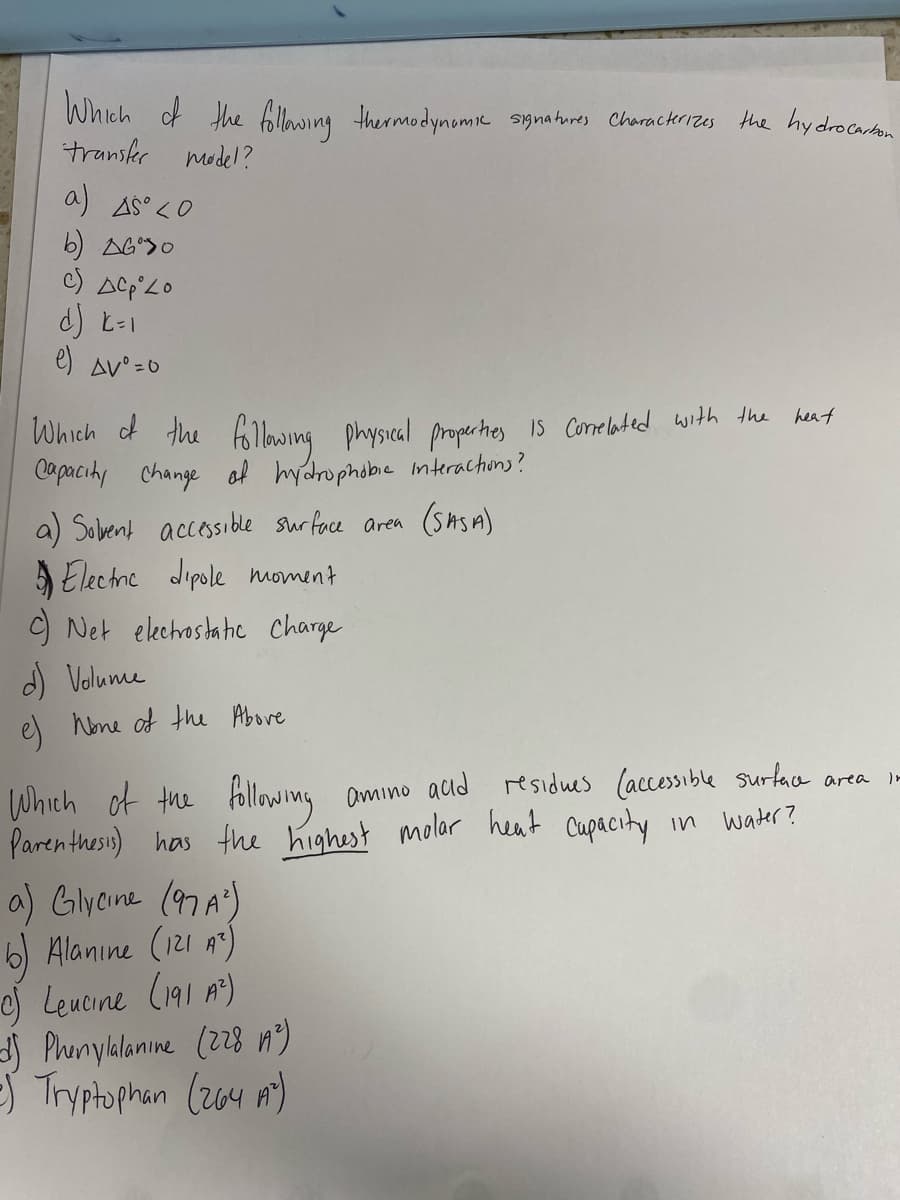 Which of the following thermodynamic signatures characterizes the hydrocarbon
transfer model?
a) ΔS° < 0
b) ΔG° > 0
c) ΔCp° < 0
d) K = 1
e) ΔV° = 0
Which of the following physical properties is correlated with the heat
Capacity change of hydrophobic interactions?
a) Solvent accessible surface area (SASA)
b) Electric dipole moment
c) Net electrostatic charge
d) Volume
e) None of the Above
Which of the following amino acid residues (accessible surface area in
Parenthesis) has the highest molar heat capacity in water?
a) Glycine (97 A²)
b) Alanine (121 A²)
c) Leucine (191 A²)
d) Phenylalanine (228 A²)
e) Tryptophan (264 A²)